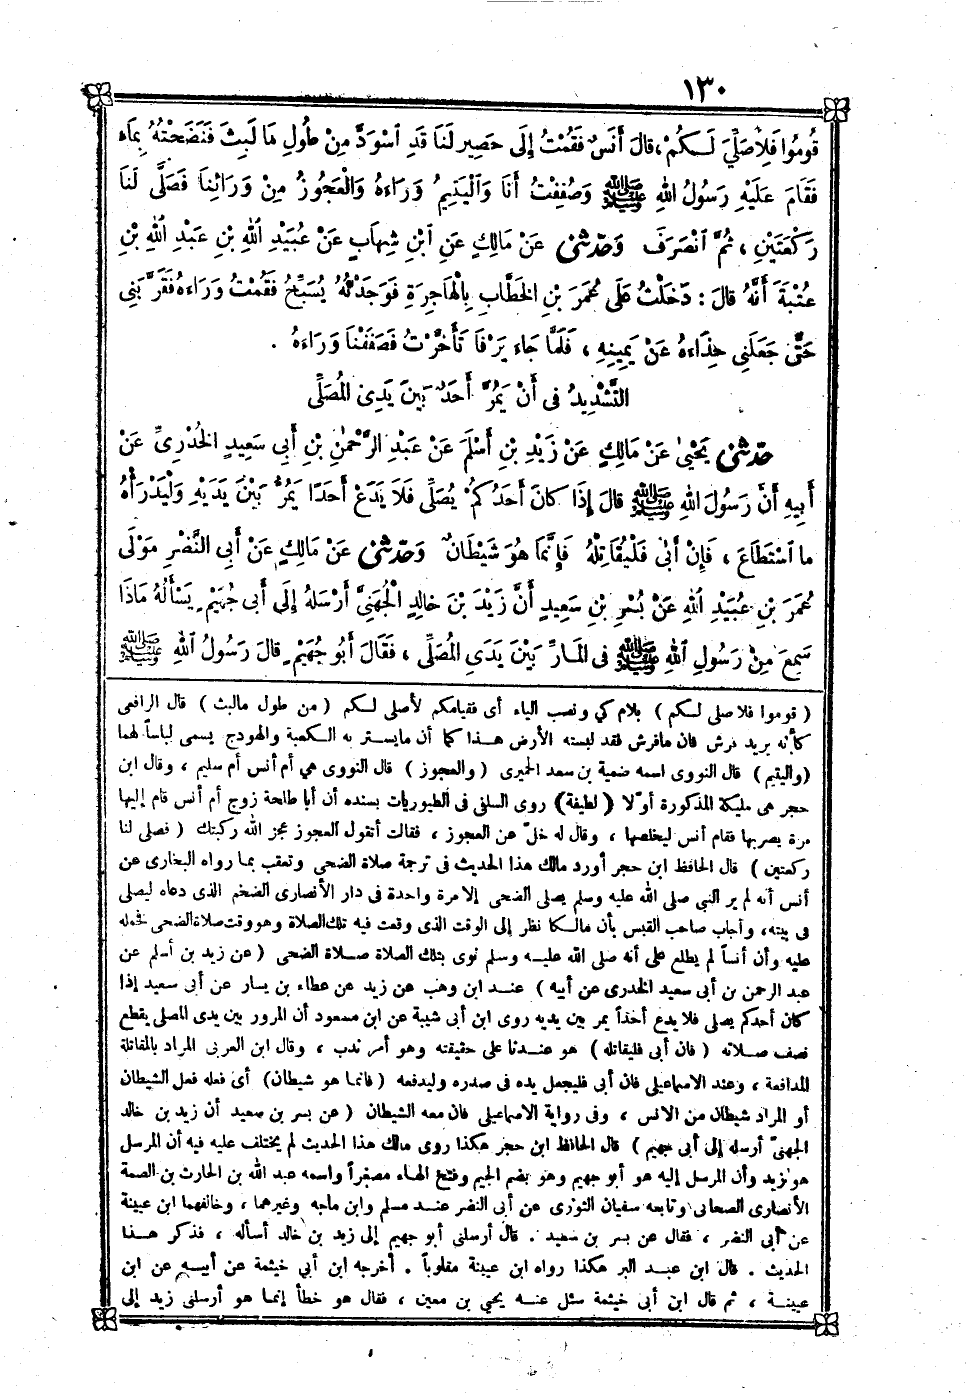 ١٣٠
قُومُوا فَلِأُصَلِّيَ لَكُمْ، قَالَ أَنَسٌ فَقُمْتُ إِلَى حَصِيرٍ لَنَا قَدِ اسْوَدَّ مِنْ طُولِ مَا لَبِثَ فَنَضَحْتُهُ بِمَاءٍ
فَقَامَ عَلَيْهِ رَسُولُ اللهِ ﷺ وَصُفِفْتُ أَنَا وَالْيَتِيمُ وَرَاءَهُ وَالْعَجُوزُ مِنْ وَرَائِنَا فَصَلَّى لَنَا
رَكْعَتَيْنِ ، ثُمَّ انْصَرَفَ وَحَدَّثَنِي عَنْ مَالِكٍ عَنِ ابْنِ شِهَابٍ عَنْ عُبَيْدِ اللهِ بْنِ عَبْدِ اللهِ بْنِ
عُتْبَةَ أَنَّهُ قَالَ : دَخَلْتُ عَلَى عُمَرَ بْنِ الْخَطَّابِ بِالْهَاجِرَةِ فَوَجَدْتُهُ يُسَبِّحُ فَقُمْتُ وَرَاءَهُ فَقَرَّبَنِي
حَتَّى جَعَلَنِي حِذَاءَهُ عَنْ يَمِينِهِ ، فَلَمَّا جَاءَ يَرْفَا تَأَخَّرْتُ فَصَفَفْنَا وَرَاءَهُ .
التَّشْدِيدُ فى أَنْ يَمُرَّ أَحَدٌ بَيْنَ يَدَىِ الْمُصَلِّى
حَدَّثَنِي يَحْيَى عَنْ مَالِكٍ عَنْ زَيْدِ بْنِ أَسْلَمَ عَنْ عَبْدِ الرَّحْمٰنِ بْنِ أَبِي سَعِيدٍ الْخُدْرِىِّ عَنْ
أَبِيهِ أَنَّ رَسُولَ اللهِ ﷺ قَالَ إِذَا كَانَ أَحَدُكُمْ يُصَلِّى فَلَا يَدَعْ أَحَدًا يَمُرُّ بَيْنَ يَدَيْهِ وَلْيَدْرَأْهُ
ما اسْتَطَاعَ ، فَإِنْ أَبَى فَلْيُقَاتِلْهُ فَإِنَّمَا هُوَ شَيْطَانٌ وَحَدَّثَنِي عَنْ مَالِكٍ عَنْ أَبِى النَّضْرِ مَوْلَى
عُمَرَ بْنِ عُبَيْدِ اللهِ عَنْ بُسْرِ بْنِ سَعِيدٍ أَنَّ زَيْدَ بْنَ خَالِدٍ الْجُهَنِىَّ أَرْسَلَهُ إِلَى أَبِى جُهَيْمٍ يَسْأَلُهُ مَاذَا
سَمِعَ مِنْ رَسُولِ اللهِ ﷺ فى الْمَارِّ بَيْنَ يَدَىِ الْمُصَلِّى ، فَقَالَ أَبُو جُهَيْمٍ قَالَ رَسُولُ اللهِ ﷺ
( قوموا فلأصلى لكم ) بلام كي ونصب الياء أى فقيامكم لأصلى لكم ( من طول مالبث ) قال الرافعى
كأنه يريد فرش فان مافرش فقد لبسته الأرض هذا كما أن مايستر به الكعبة والهودج يسمى لباساً لهما
(واليتيم) قال النووى اسمه ضميرة بن سعد الحميرى ( والعجوز ) قال النووى هي أم أنس أم سليم ، وقال ابن
حجر هى مليكة المذكورة أوّلا ( لطيفة) روى السلفى فى الطيوريات بسنده أن أبا طلحة زوج أم أنس قام إليها
مرة يضربها فقام أنس ليخلصها ، وقال له خلّ عن العجوز ، فقالت أتقول العجوز عجز الله ركبتك ( فصلى لنا
ركعتين ) قال الحافظ ابن حجر أورد مالك هذا الحديث فى ترجمة صلاة الضحى وتعقب بما رواه البخارى عن
أنس أنه لم ير النبي صلى الله عليه وسلم يصلى الضحى إلا مرة واحدة فى دار الأنصارى الضخم الذى دعاه ليصلى
فى بيته، وأجاب صاحب القبس بأن مالكا نظر إلى الوقت الذى وقعت فيه تلك الصلاة وهو وقت صلاة الضحى فحمله
عليه وأن أنساً لم يطلع على أنه صلى الله عليه وسلم نوى بتلك الصلاة صلاة الضحى ( عن زيد بن أسلم عن
عبد الرحمن بن أبى سعيد الخدرى عن أبيه ) عند ابن وهب عن زيد عن عطاء بن يسار عن أبى سعيد إذا
كان أحدكم يصلى فلا يدع أحداً يمر بين يديه روى ابن أبى شيبة عن ابن مسعود أن المرور بين يدى المصلى يقطع
نصف صلاته ( فان أبى فليقاتله ) هو عندنا على حقيقته وهو أمر ندب ، وقال ابن العربى المراد بالمقاتلة
المدافعة ، وعند الاسماعيلى فان أبى فليجعل يده فى صدره وليدفعه ( فانما هو شيطان) أى فعله فعل الشيطان
أو المراد شيطان من الانس ، وفى رواية الاسماعيلى فان معه الشيطان ( عن بسر بن سعيد أن زيد بن خالد
الجهنىّ أرسله إلى أبى جهيم ) قال الحافظ ابن حجر هكذا روى مالك هذا الحديث لم يختلف عليه فيه أن المرسل
هو زيد وأن المرسل إليه هو أبو جهيم وهو بضم الجيم وفتح الهاء مصغراً واسمه عبد الله بن الحارث بن الصمة
الأنصارى الصحابى وتابعه سفيان الثورى عن أبى النضر عند مسلم وابن ماجه وغيرهما ، وخالفهما ابن عيينة
عن أبى النضر ، فقال عن بسر بن سعيد . قال أرسلنى أبو جهيم إلى زيد بن خالد أسأله ، فذكر هذا
الحديث . قال ابن عبد البر هكذا رواه ابن عيينة مقلوباً . أخرجه ابن أبي خيثمة عن أبيه عن ابن
عيينة ، ثم قال ابن أبى خيثمة سئل عنه يحيى بن معين ، فقال هو خطأ إنما هو أرسلنى زيد إلى